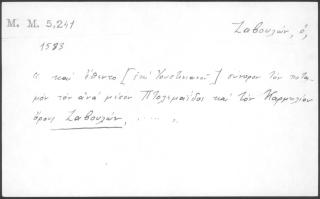 M. M. 5,241
Ζαβουλών, ὁ,
1593
" καὶ ἔθεντο [ἐπὶ Ἰουστινιανοῦ] σύνορον τὸν ποτα-
μὸν τὸν ἀνὰ μέσον Πτολεμαΐδος καὶ τοῦ Καρμηλίου
ὄρους Ζαβουλών, ..... ,